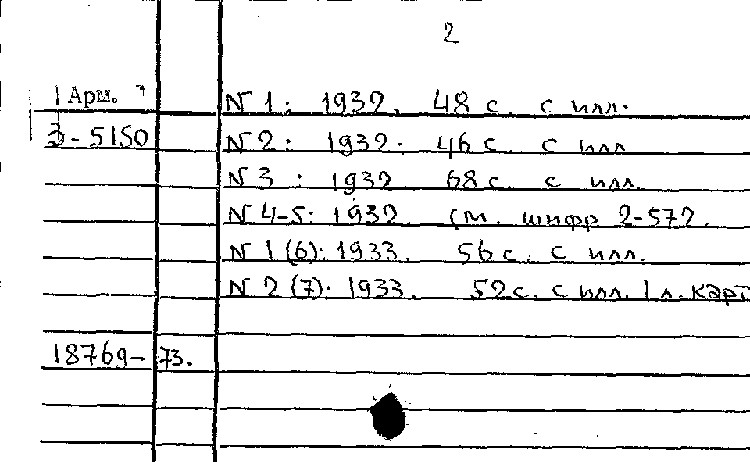 2
Арм.
N 1: 1932. 48 с. с илл.
3-5150
N 2: 1932. 46 с. с илл
N 3: 1932 68 с. с илл.
N 4-5: 1932. См. шифр 2-572.
N 1 (6): 1933. 56 с. с илл.
N 2 (7): 1933. 52 с. с илл. 1 л. карт
18769-73.